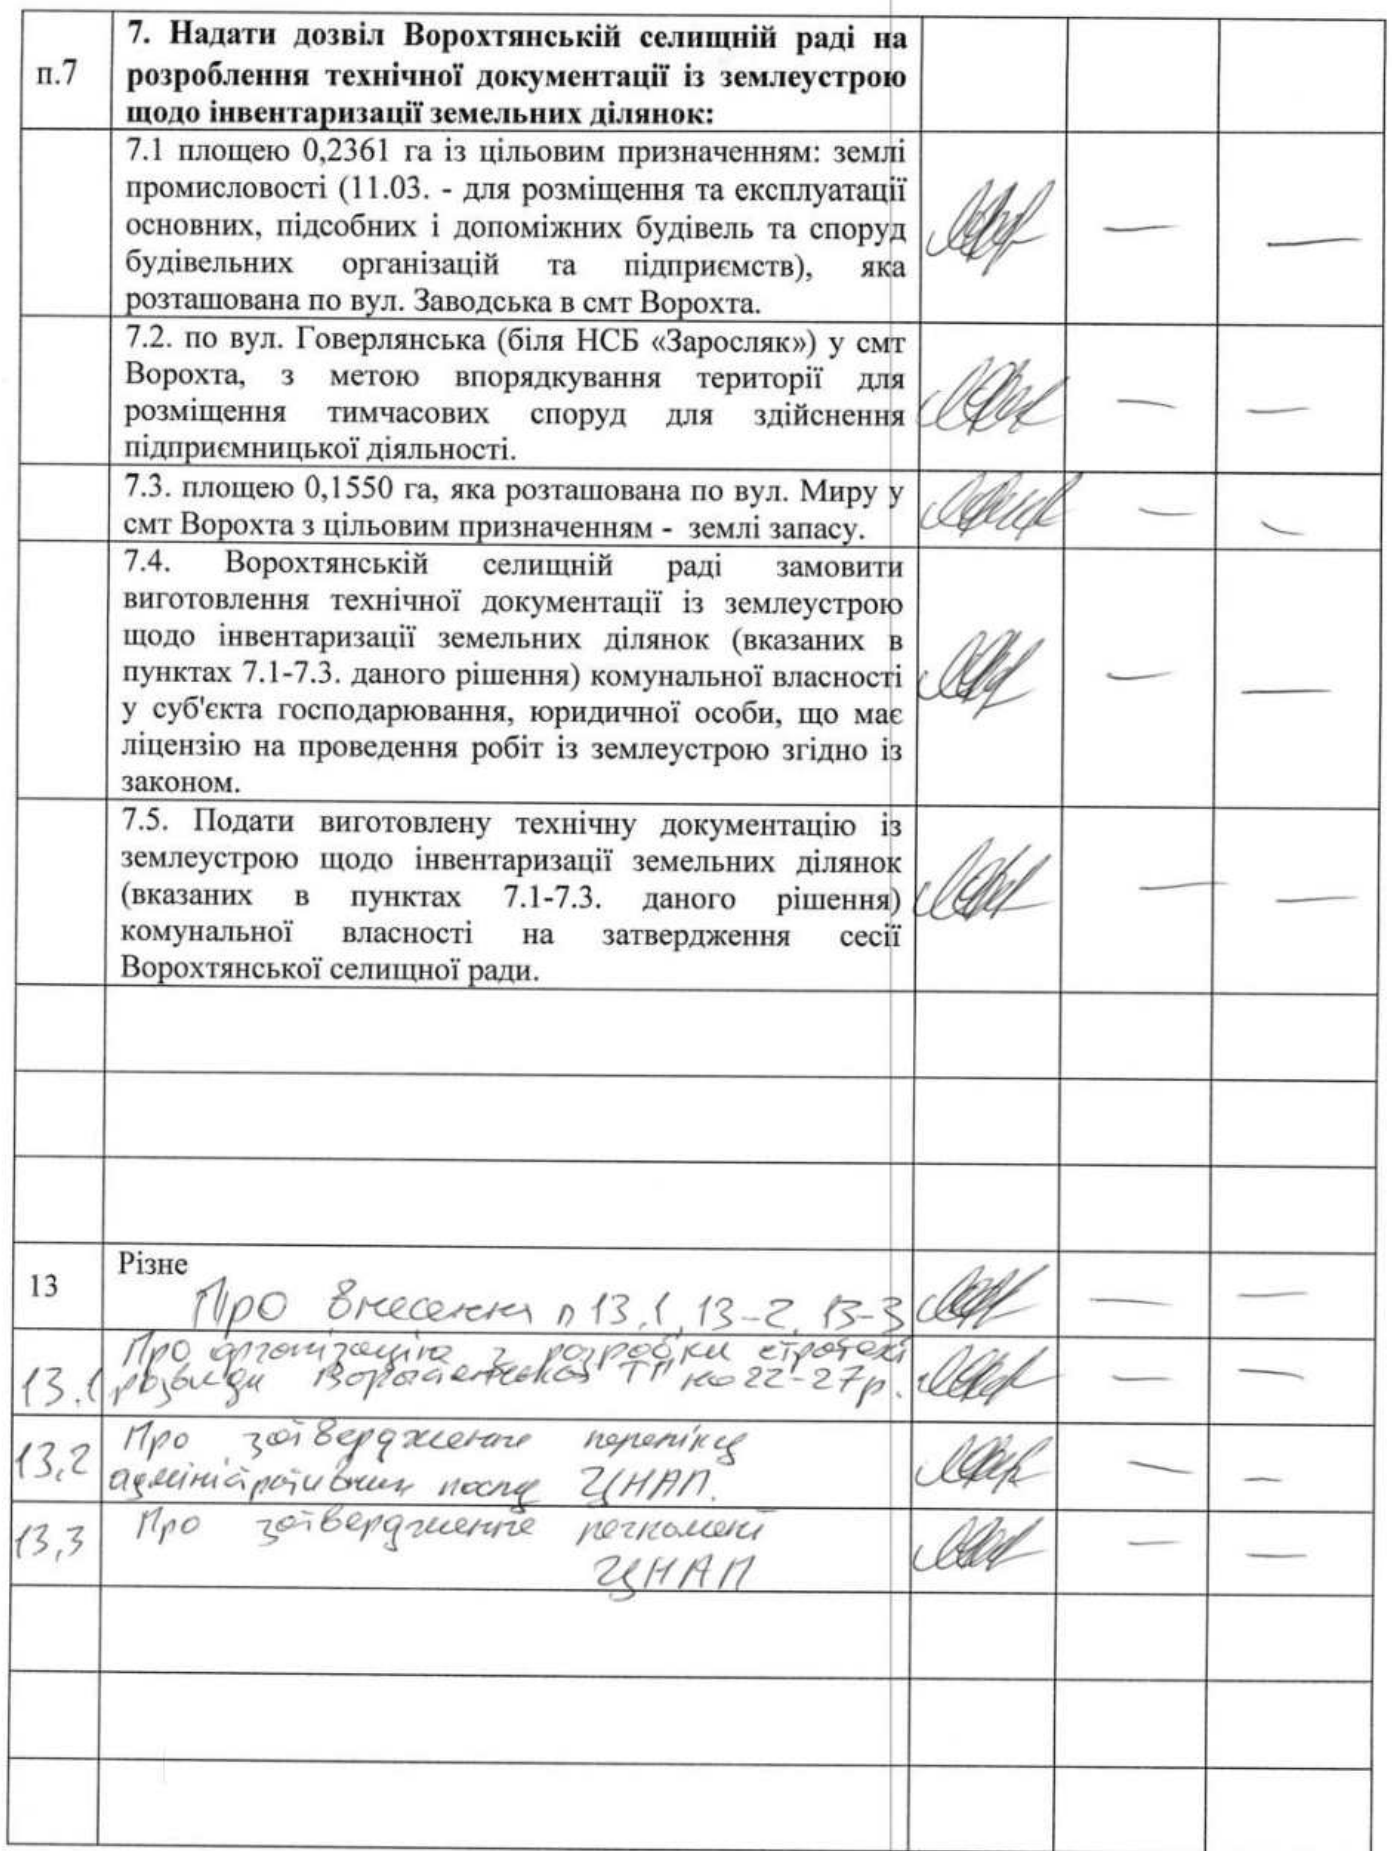 п.7
7. Надати дозвіл Ворохтянській селищній раді на
розроблення технічної документації із землеустрою
щодо інвентаризації земельних ділянок:
7.1 площею 0,2361 га із цільовим призначенням: землі
промисловості (11.03. - для розміщення та експлуатації
основних, підсобних і допоміжних будівель та споруд
будівельних організацій та підприємств), яка
розташована по вул. Заводська в смт Ворохта.
7.2. по вул. Говерлянська (біля НСБ «Заросляк») у смт
Ворохта, з метою впорядкування території для
розміщення тимчасових споруд для здійснення
підприємницької діяльності.
7.3. площею 0,1550 га, яка розташована по вул. Миру у
смт Ворохта з цільовим призначенням - землі запасу.
7.4. Ворохтянській селищній раді замовити
виготовлення технічної документації із землеустрою
щодо інвентаризації земельних ділянок (вказаних в
пунктах 7.1-7.3. даного рішення) комунальної власності
у суб'єкта господарювання, юридичної особи, що має
ліцензію на проведення робіт із землеустрою згідно із
законом.
7.5. Подати виготовлену технічну документацію із
землеустрою щодо інвентаризації земельних ділянок
(вказаних в пунктах 7.1-7.3. даного рішення)
комунальної власності на затвердження сесії
Ворохтянської селищної ради.
13
Різне
Про внесення п 13.1, 13-2, 13-3
13.1
Про організацію з розробки стратегі
Ворохтянської ТГ на 22-27р.
13,2
Про затвердження переліку
адміністративних послуг ЦНАП.
13,3
Про затвердження регламент
ЦНАП